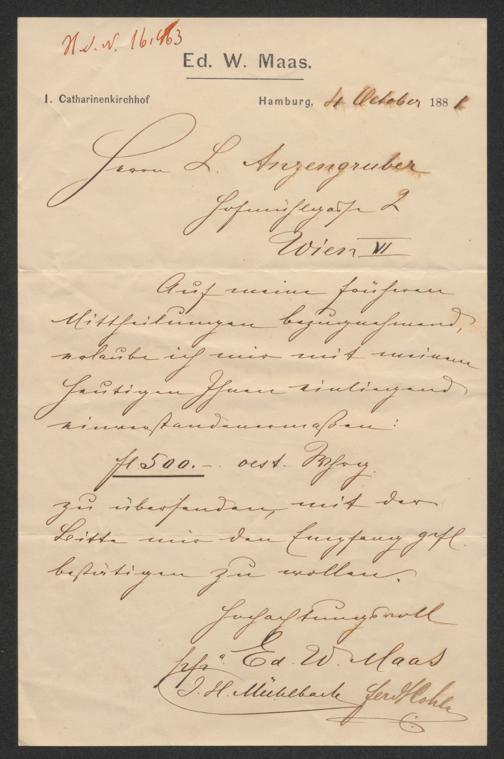 H.I.N. 16.463
Ed. W. Maas.
1. Catharinenkirchhof Hamburg, 4 October 1881
Herrn L. Anzengruber
Hofmühlgasse 2
Wien VI
Auf meine früheren
Mittheilungen bezugnehmend,
erlaube ich mir mit meinem
Heutigen Ihnen einliegend
einverstandenermaßen:
fl 500.- oest. Whrg.
zu übersenden, mit der
Bitte mir den Empfang gefl.
bestätigen zu wollen.
Hochachtungsvoll
Ed. W. Maas
J. H. Mühlbach